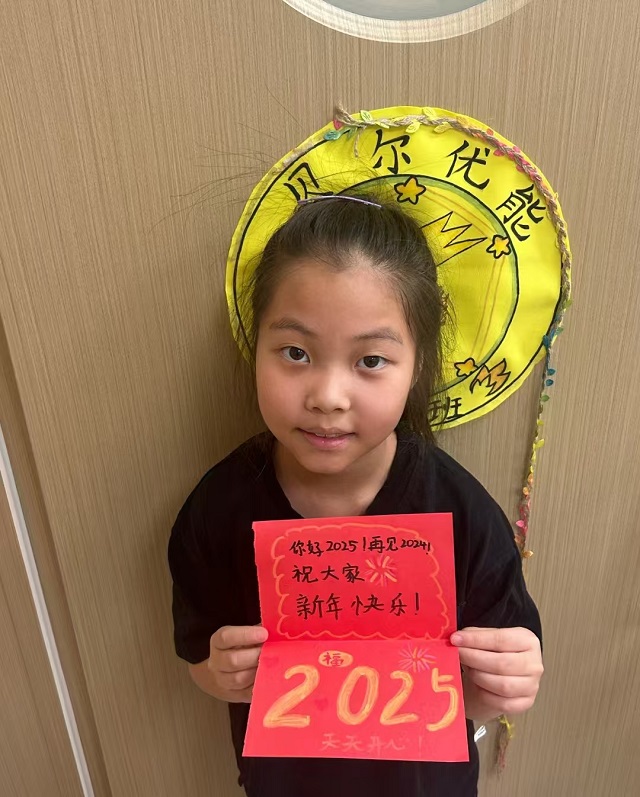 贝尔优能
班
你好2025！再见2024！
祝大家
新年快乐！
福
2025
天天开心！